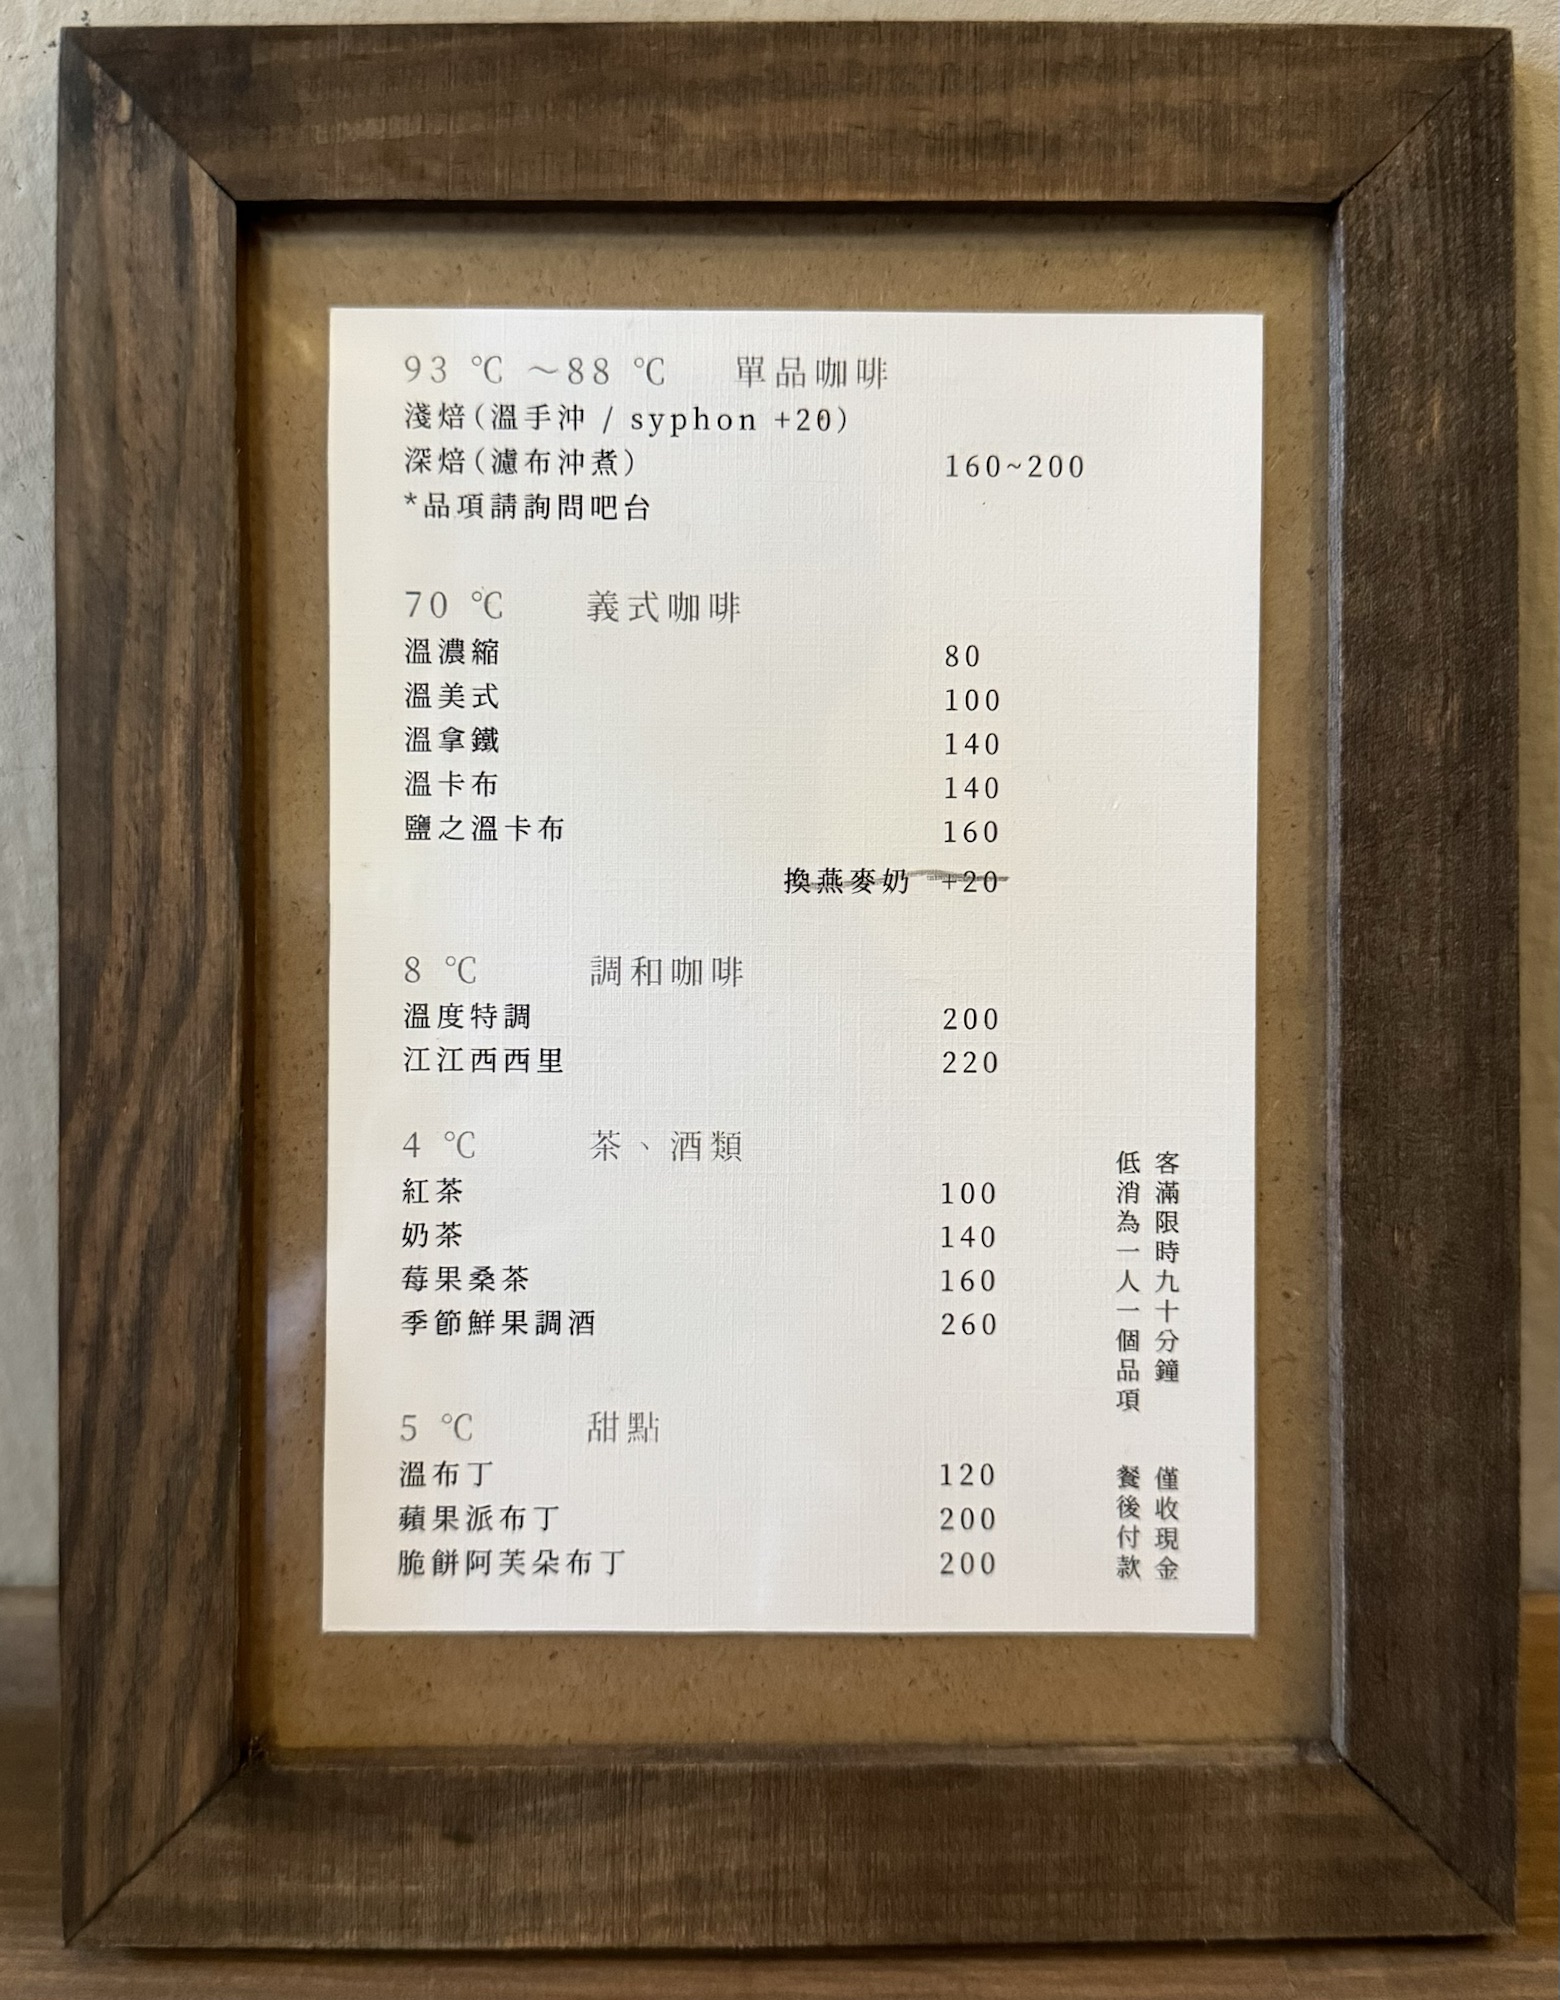 93 ℃ ～88 ℃ 單品咖啡
淺焙(溫手沖 / syphon +20)
深焙(濾布沖煮) 160~200
*品項請詢問吧台
70 ℃ 義式咖啡
溫濃縮 80
溫美式 100
溫拿鐵 140
溫卡布 140
鹽之溫卡布 160
換燕麥奶 +20
8 ℃ 調和咖啡
溫度特調 200
江江西西里 220
4 ℃ 茶、酒類
紅茶 100
奶茶 140
莓果桑茶 160
季節鮮果調酒 260
5 ℃ 甜點
溫布丁 120
蘋果派布丁 200
脆餅阿芙朵布丁 200
客滿限時九十分鐘
低消為一人一個品項
僅收現金
餐後付款